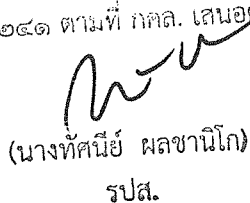 ๒๔๑ ตามที่ กตล. เสนอ
(นางทัศนีย์ ผลชานิโก)
รปส.